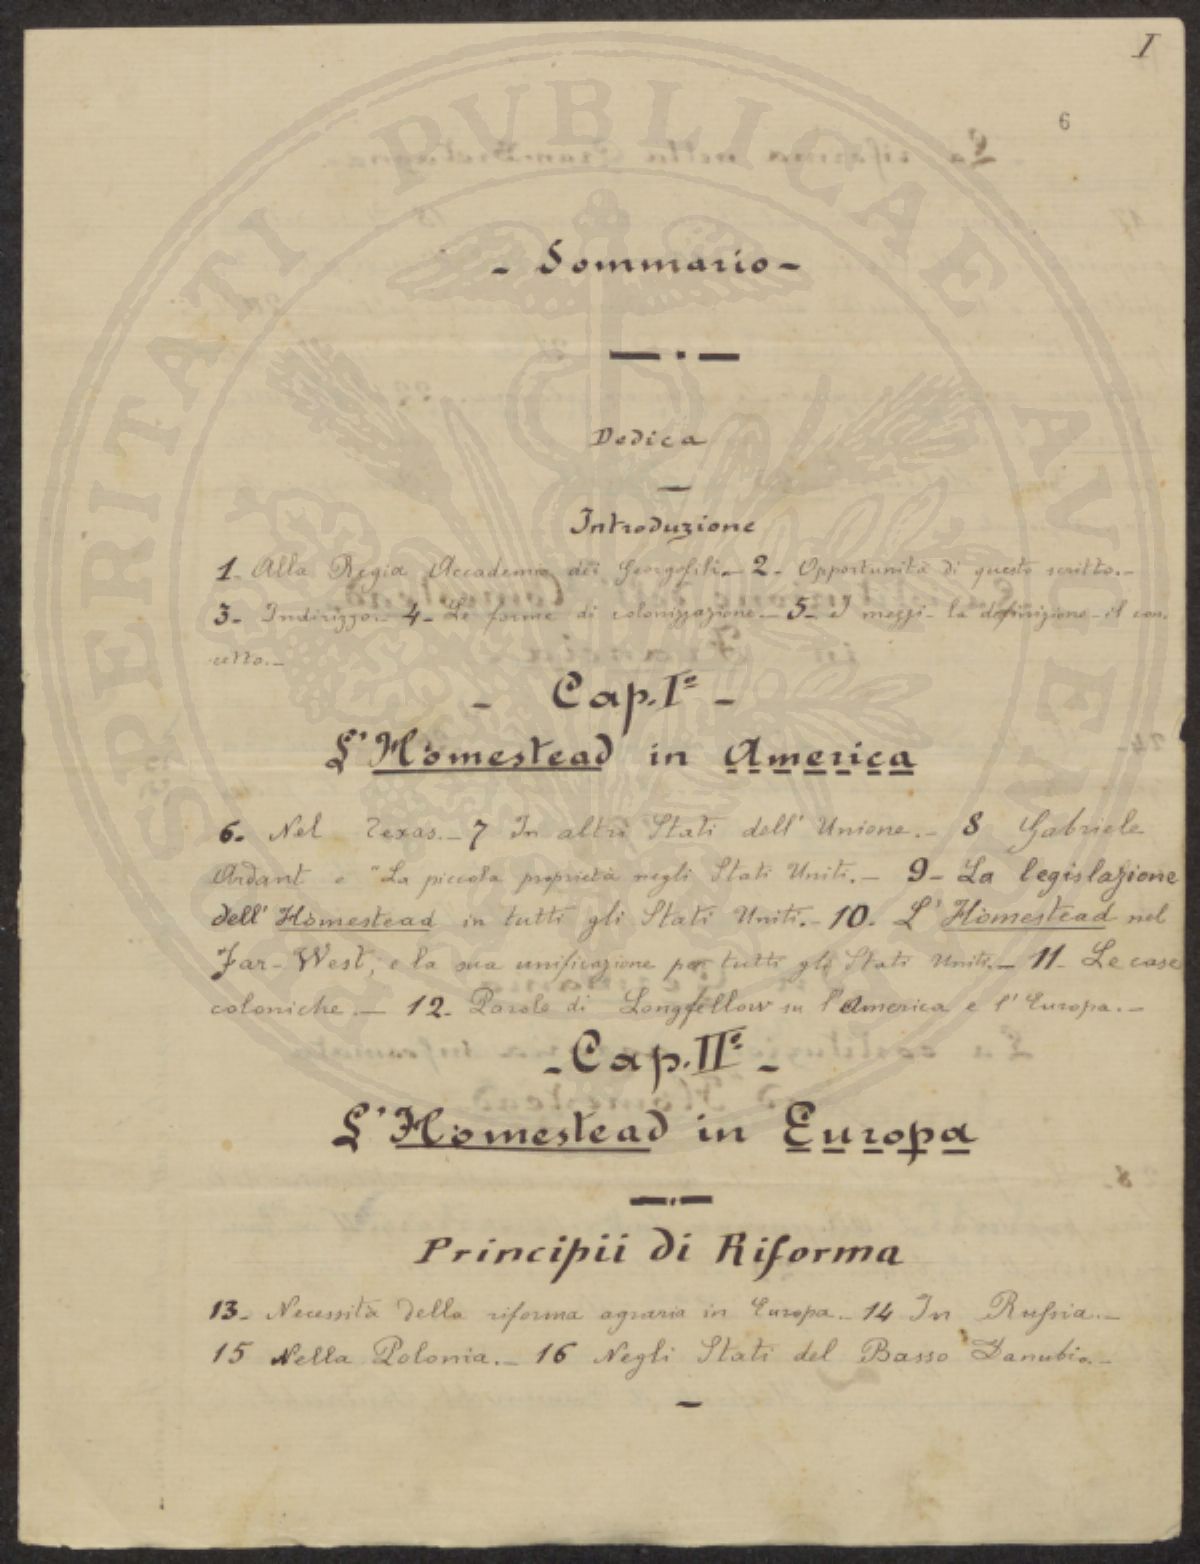 I
6
- Sommario -
Dedica
Introduzione
1- Alla Regia Accademia dei Georgofili.- 2- Opportunità di questo scritto.-
3- Indirizzo.- 4- Le forme di colonizzazione.- 5- I mezzi- la definizione- il con-
cetto.-
- Cap. Iº -
L'Homestead in America
6. Nel Texas.- 7 In altri Stati dell' Unione.- 8 Gabriele
Ardant e "La piccola proprietà negli Stati Uniti.- 9- La legislazione
dell' Homestead in tutti gli Stati Uniti.- 10. L' Homestead nel
Far-West, e la sua unificazione per tutti gli Stati Uniti.- 11- Le case
coloniche.- 12- Parole di Longfellow su l'America e l'Europa.-
- Cap. IIº -
L'Homestead in Europa
Principii di Riforma
13- Necessità della riforma agraria in Europa.- 14 In Russia.-
15 Nella Polonia.- 16 Negli Stati del Basso Danubio.-
SPERITATI PVBLICAE AVGENDAE